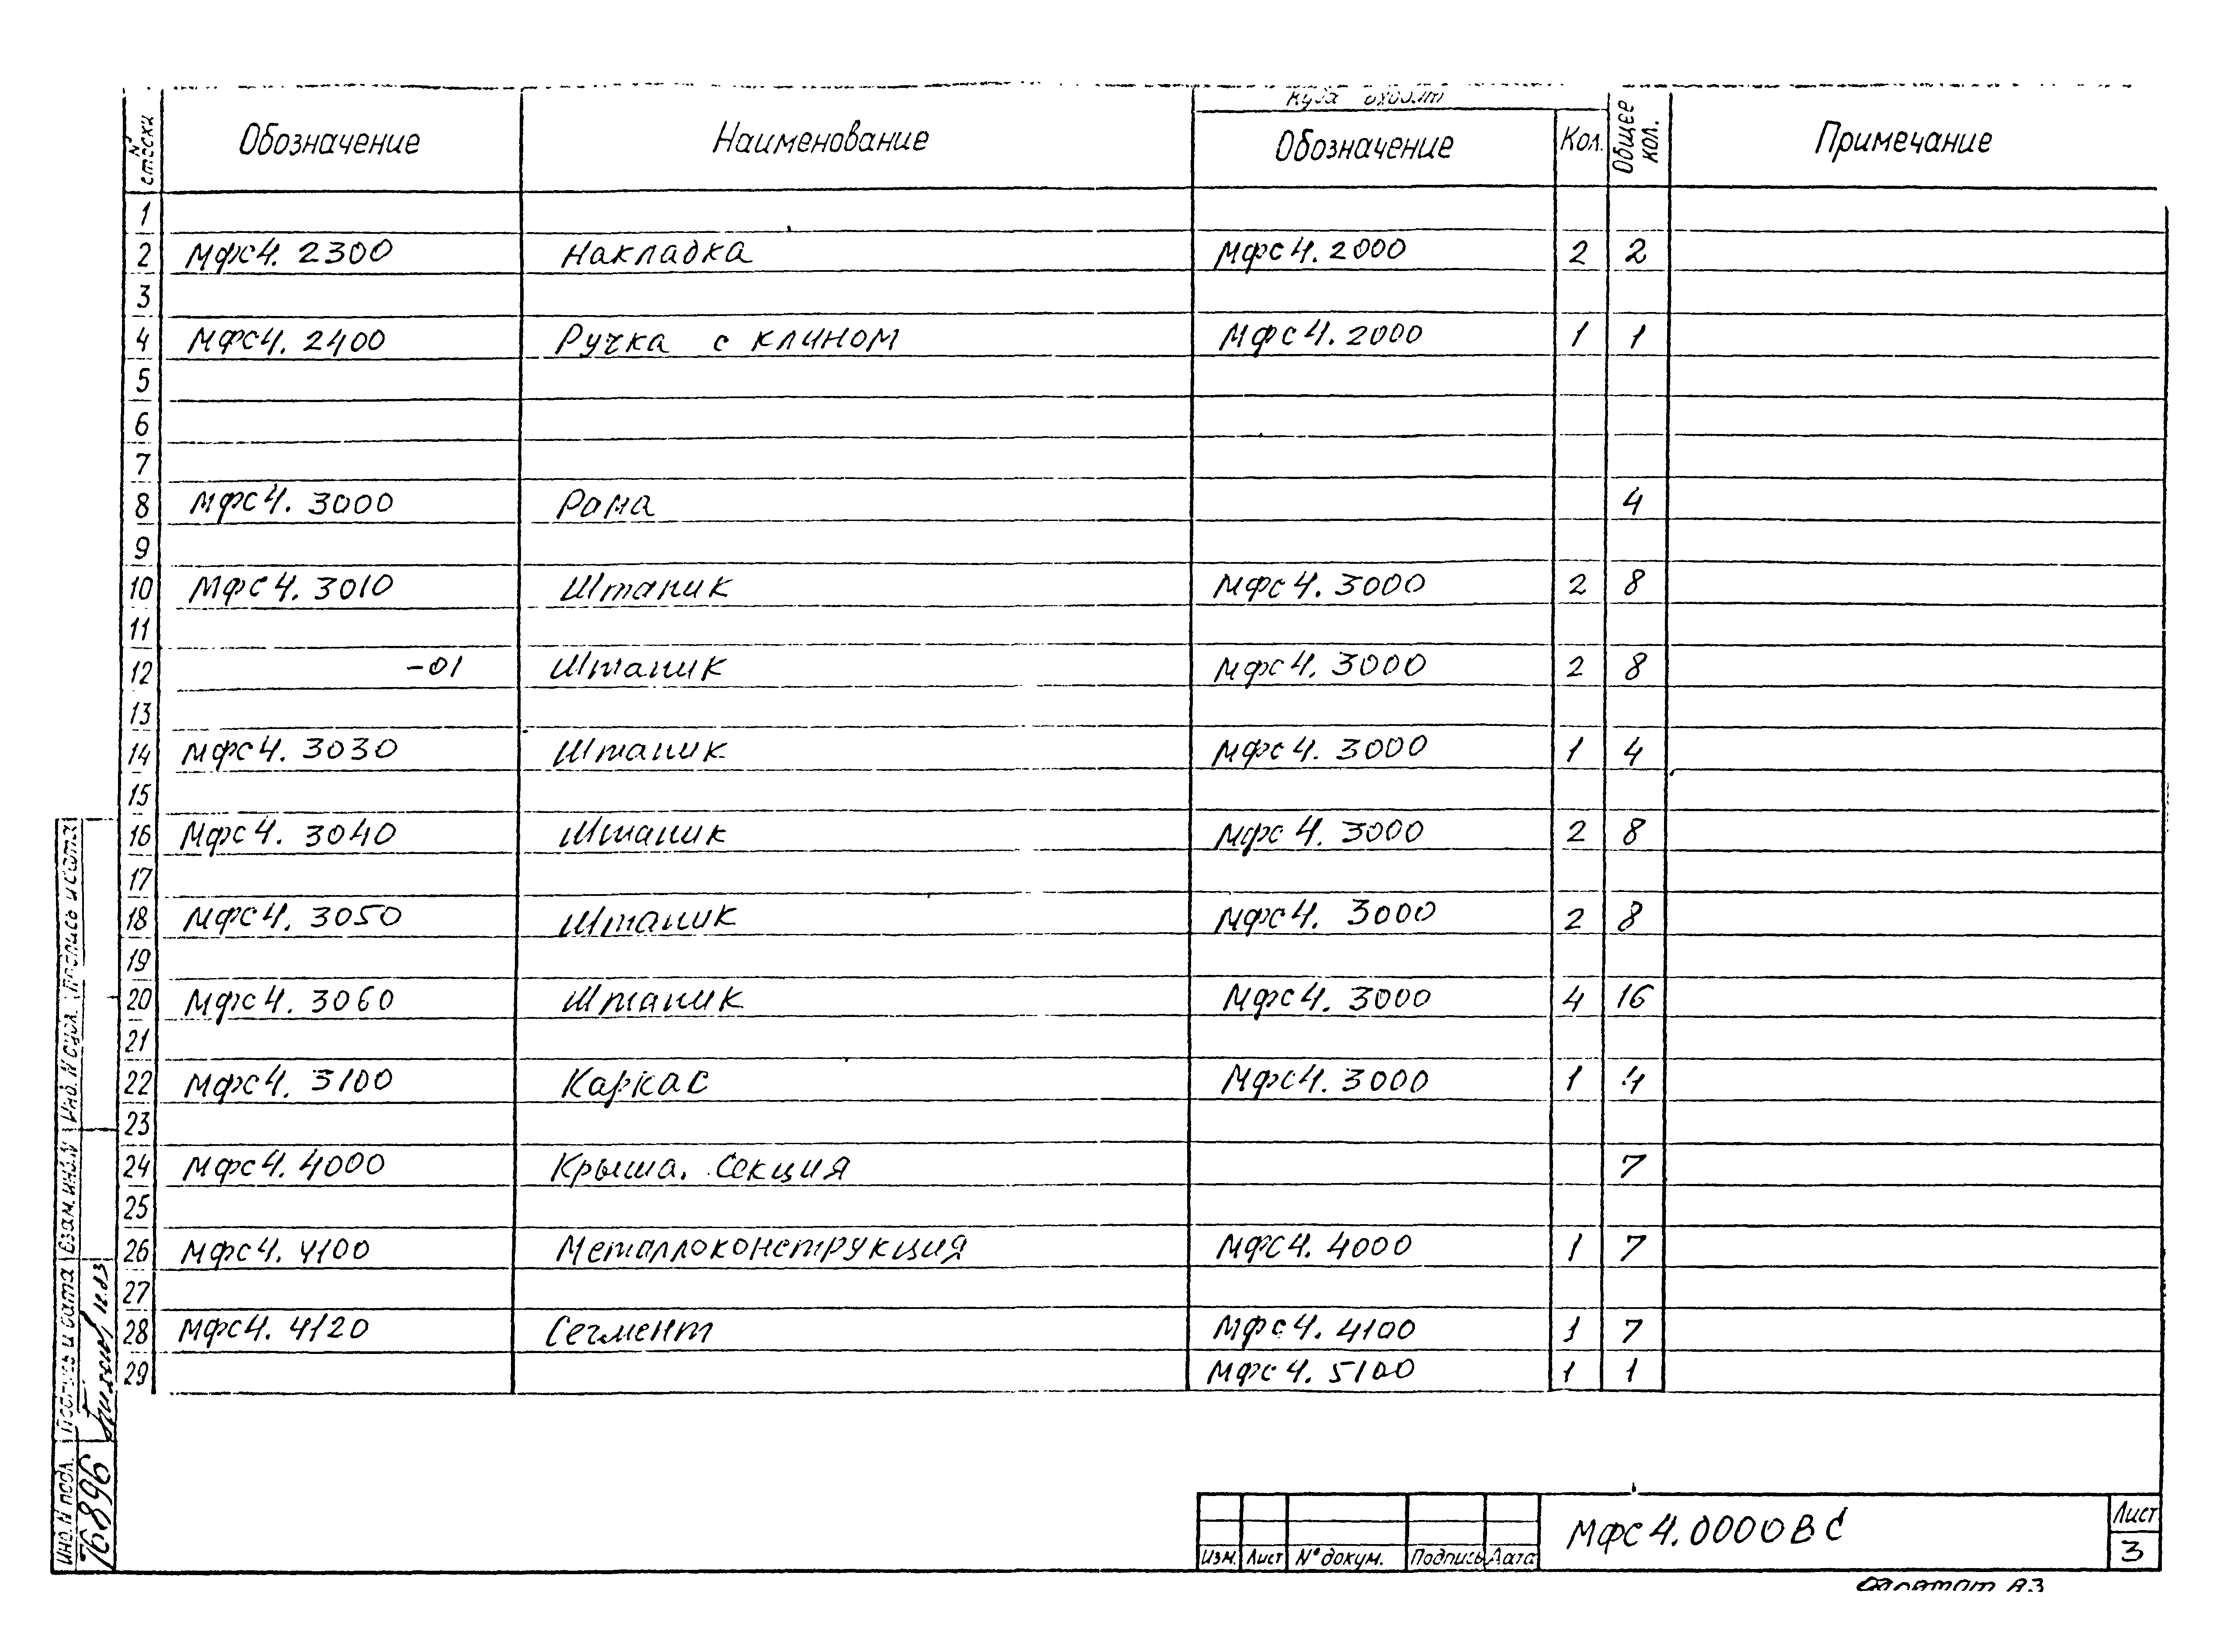 Куда входит
№ строки Обозначение Наименование Обозначение Кол. Общее кол. Примечание
1
2 МФС4. 2300 Накладка МФС4. 2000 2 2
3
4 МФС4. 2400 Ручка с клином МФС4. 2000 1 1
5
6
7
8 МФС4. 3000 Рама 4
9
10 МФС4. 3010 Штапик МФС4. 3000 2 8
11
12 -01 Штапик МФС4. 3000 2 8
13
14 МФС4. 3030 Штапик МФС4. 3000 1 4
15
16 МФС4. 3040 Штапик МФС4. 3000 2 8
17
18 МФС4. 3050 Штапик МФС4. 3000 2 8
19
20 МФС4. 3060 Штапик МФС4. 3000 4 16
21
22 МФС4. 3100 Каркас МФС4. 3000 1 4
23
24 МФС4. 4000 Крыша. Секция 7
25
26 МФС4. 4100 Металлоконструкция МФС4. 4000 1 7
27
28 МФС4. 4120 Сегмент МФС4. 4100 1 7
29 МФС4. 5100 1 1
Инв. N подл. Подпись и дата Взам. инв. N Инв. N дубл. Подпись и дата
76896 12.83
Изм. Лист N° докум. Подпись Дата
МФС4.0000ВС
Лист
3
Формат А3